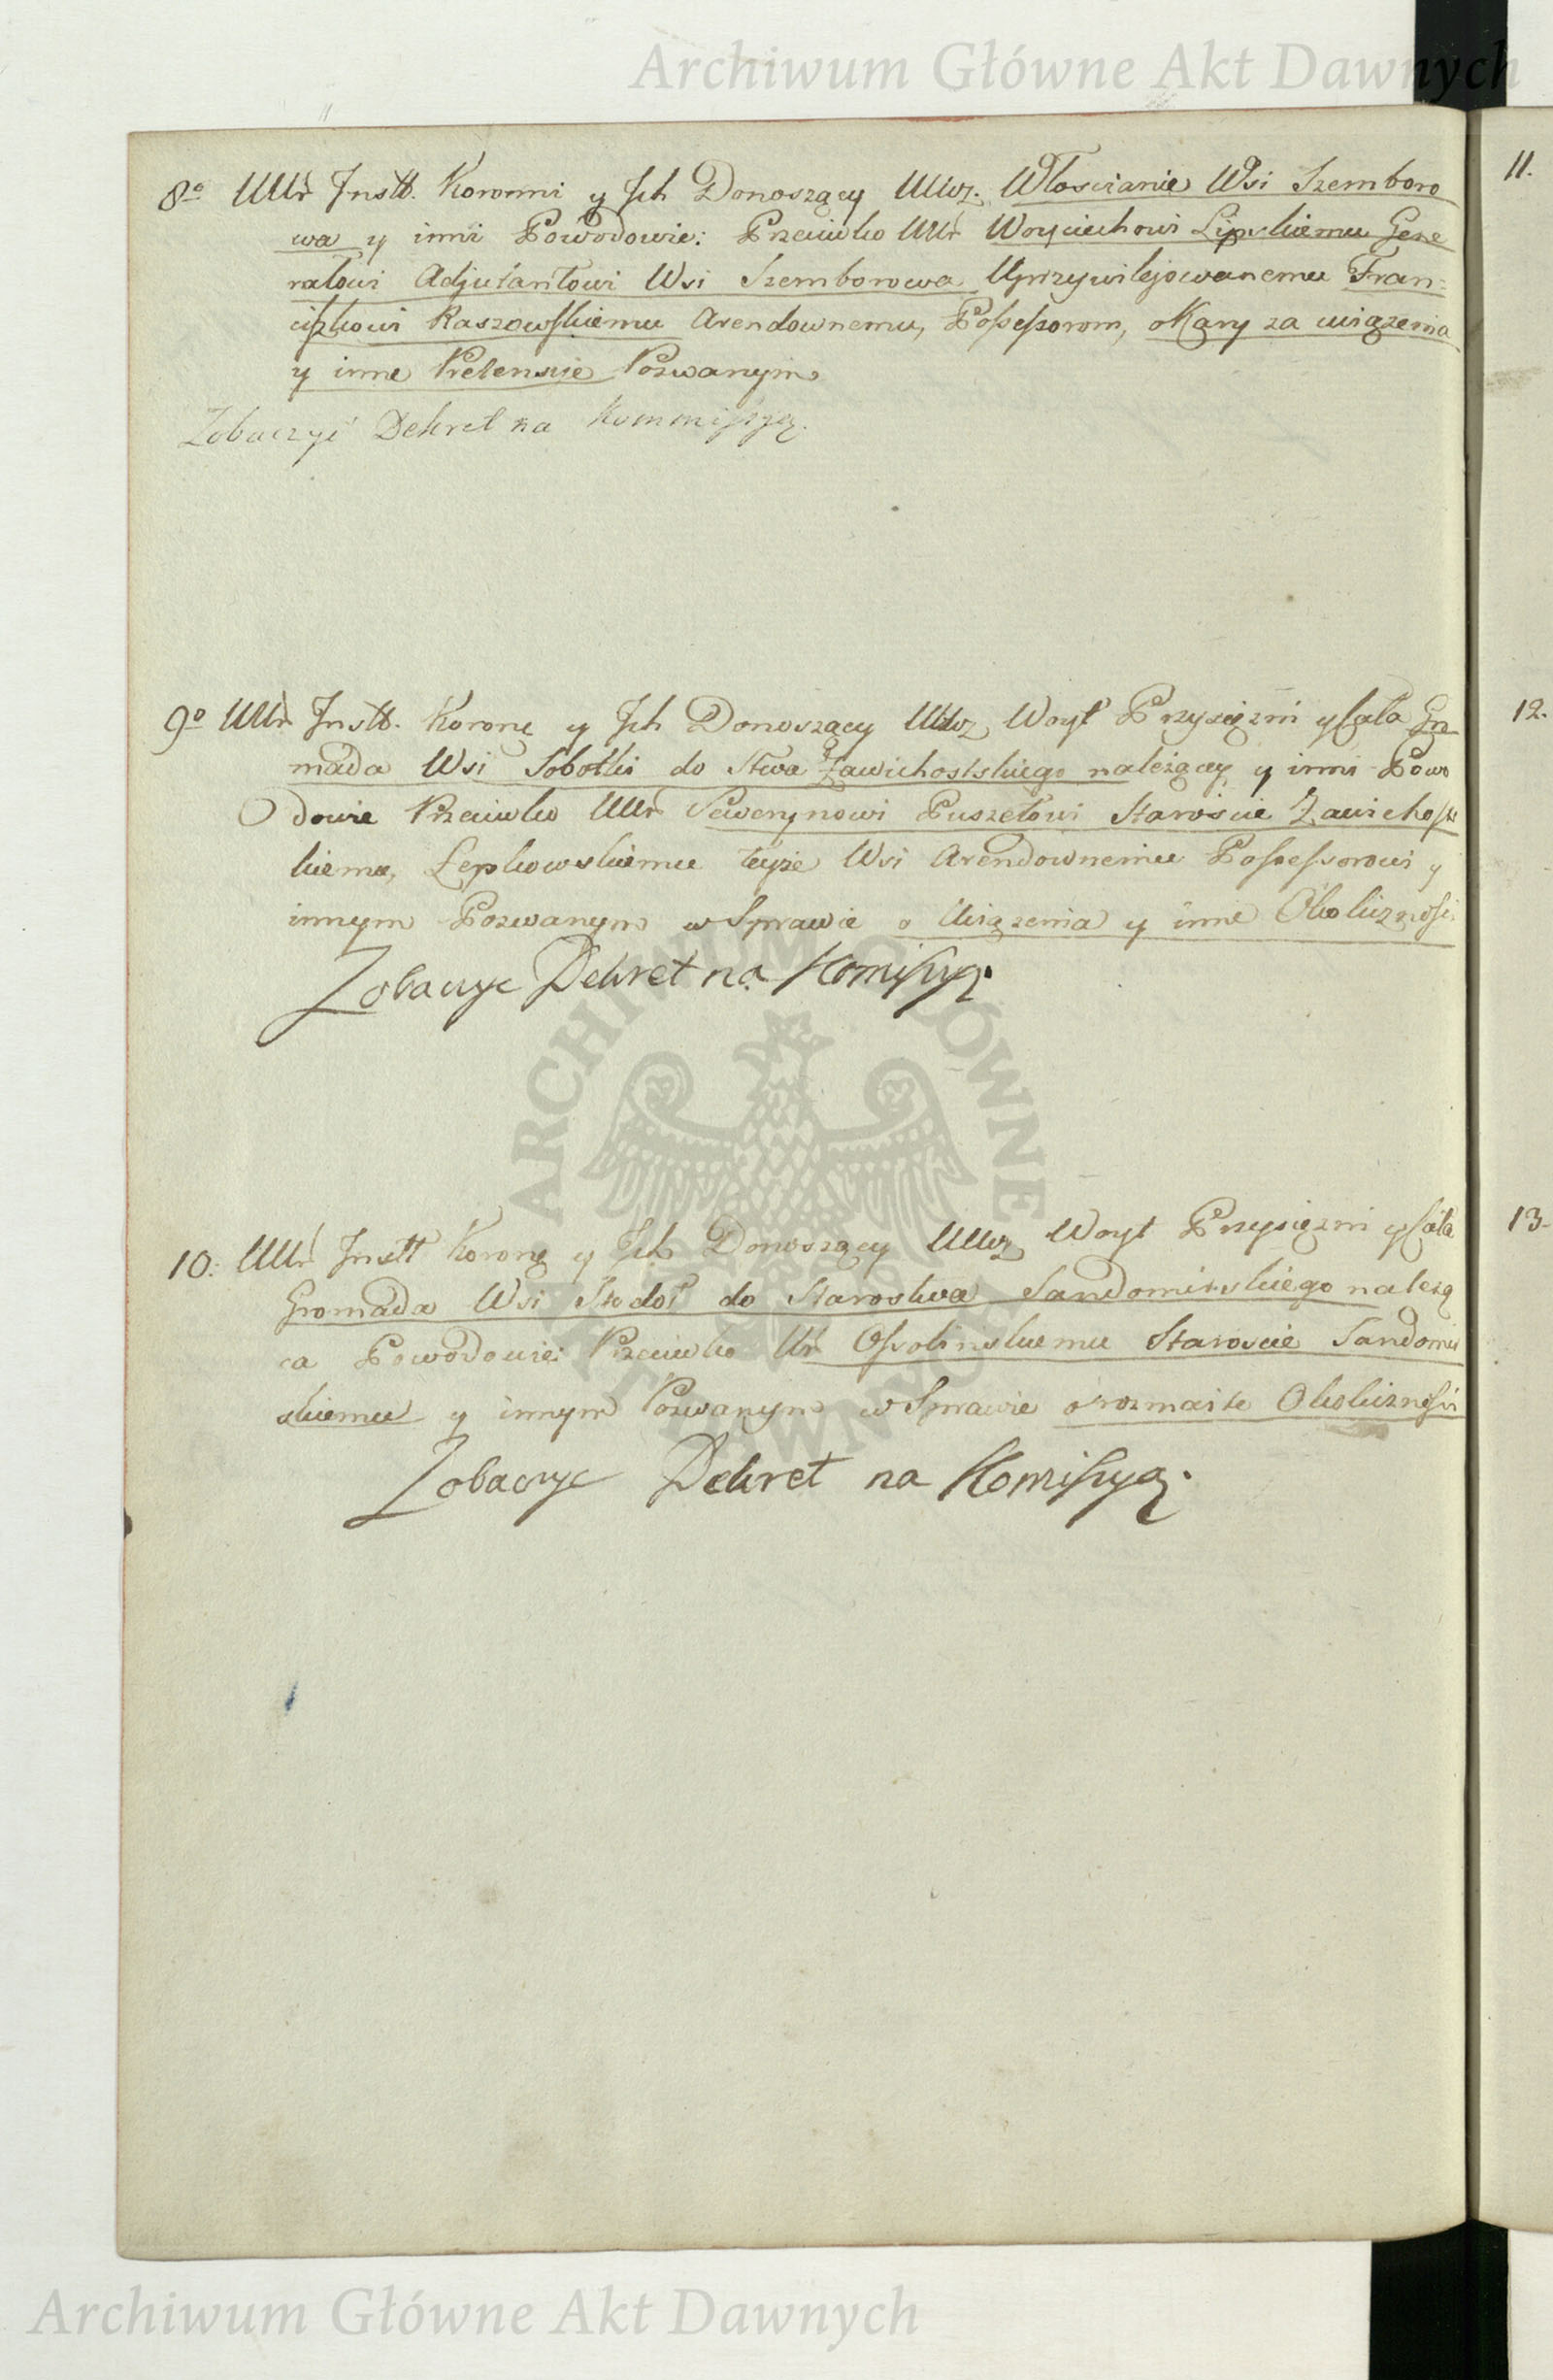 Archiwum Główne Akt Dawnych
8o UUr Instt. Koronni y Jch Donoszący UUcz. Włoscianie Wsi Szemboro
wa y inni Powodowie: Przeciwko UUr Woyciechowi Lipskiemu Gene
rałowi Adjutantowi Wsi Szemborowa Uprzywilejowanemu Fran:
ciszkowi Raszowskiemu Arendownemu, Possessorom, o Kary za uciązenia
y inne Pretensie Pozwanym
Zobaczyć Dekret na Kommissyą.
9o UUr Instt. Koronę y Jch Donoszący UUcz Woyt Przysięzni y Cała Gro
mada Wsi Sobotki do Stwa Zawichostskiego należący y inni Powo
dowie Przeciwko UUr Sewerynowi Puszetowi Staroscie Zawichost
kiemu, Lepkowskiemu teyże Wsi Arendownemu Possessorowi y
innym Pozwanym w Sprawie o Uciązenia y inne Okoliczności
Zobaczyc Dekret na Komissyą.
10: UUr Instt Koronę y Jch Donoszący UUcz Woyt Przysięzni y Cała
Gromada Wsi Stodoł do Starostwa Sandomirskiego należą
ca Powodowie: Przeciwko Ur Ossolinskiemu Staroscie Sandomir
skiemu y innym Pozwanym w Sprawie o rozmaite Okoliczności
Zobaczyc Dekret na Komissyą.
11.
12.
13.
ARCHIWUM GŁÓWNE AKT DAWNYCH
Archiwum Główne Akt Dawnych